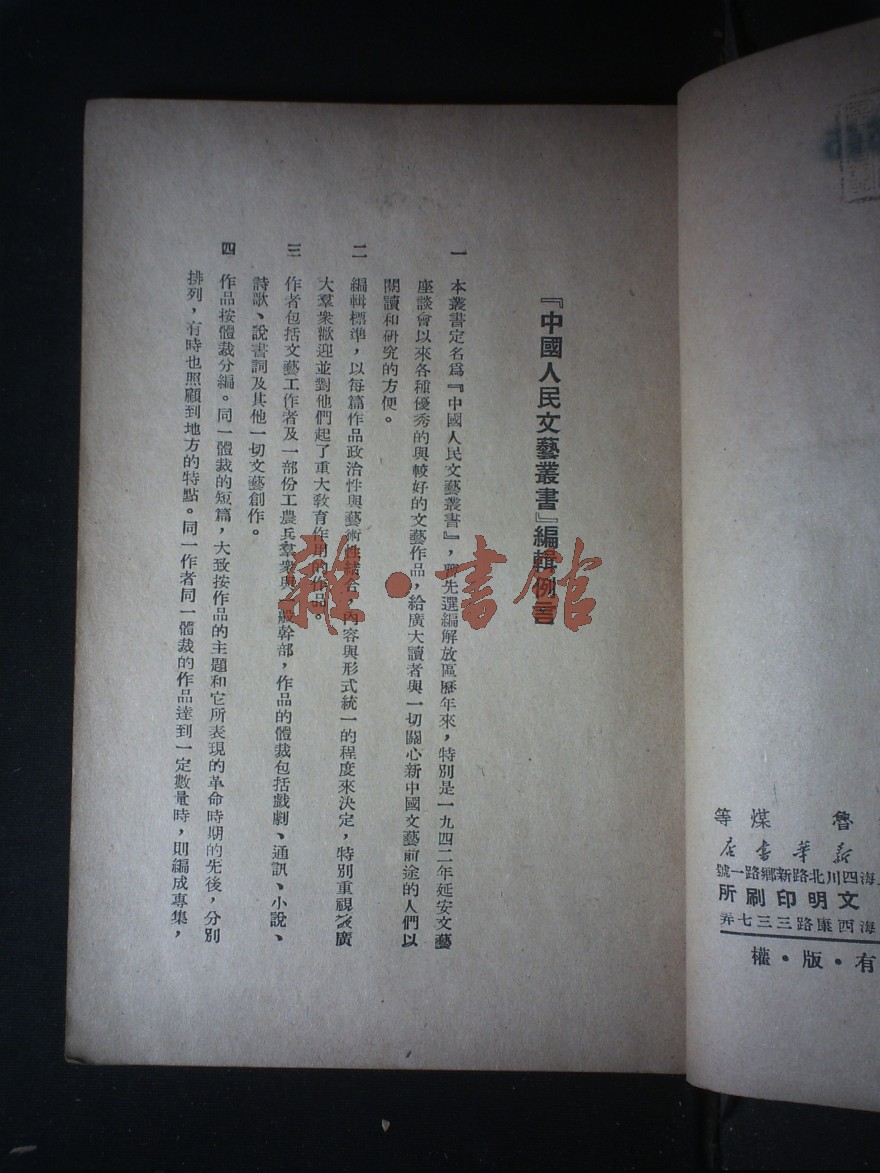 『中國人民文藝叢書』編輯例言
一 本叢書定名爲『中國人民文藝叢書』,暫先選編解放區歷年來,特別是一九四二年延安文藝
座談會以來各種優秀的與較好的文藝作品,給廣大讀者與一切關心新中國文藝前途的人們以
閱讀和研究的方便。
二 編輯標準,以每篇作品政治性與藝術性結合,內容與形式統一的程度來決定,特別重視被廣
大羣衆歡迎並對他們起了重大敎育作用的作品。
三 作者包括文藝工作者及一部份工農兵羣衆與一般幹部,作品的體裁包括戲劇、通訊、小說、
詩歌、說書詞及其他一切文藝創作。
四 作品按體裁分編。同一體裁的短篇,大致按作品的主題和它所表現的革命時期的先後,分別
排列,有時也照顧到地方的特點。同一作者同一體裁的作品達到一定數量時,則編成專集,
魯 煤 等
新華書店
海四川北路新鄉路一號
文明印刷所
海西康路三三七弄
有・版・權
雜・書館